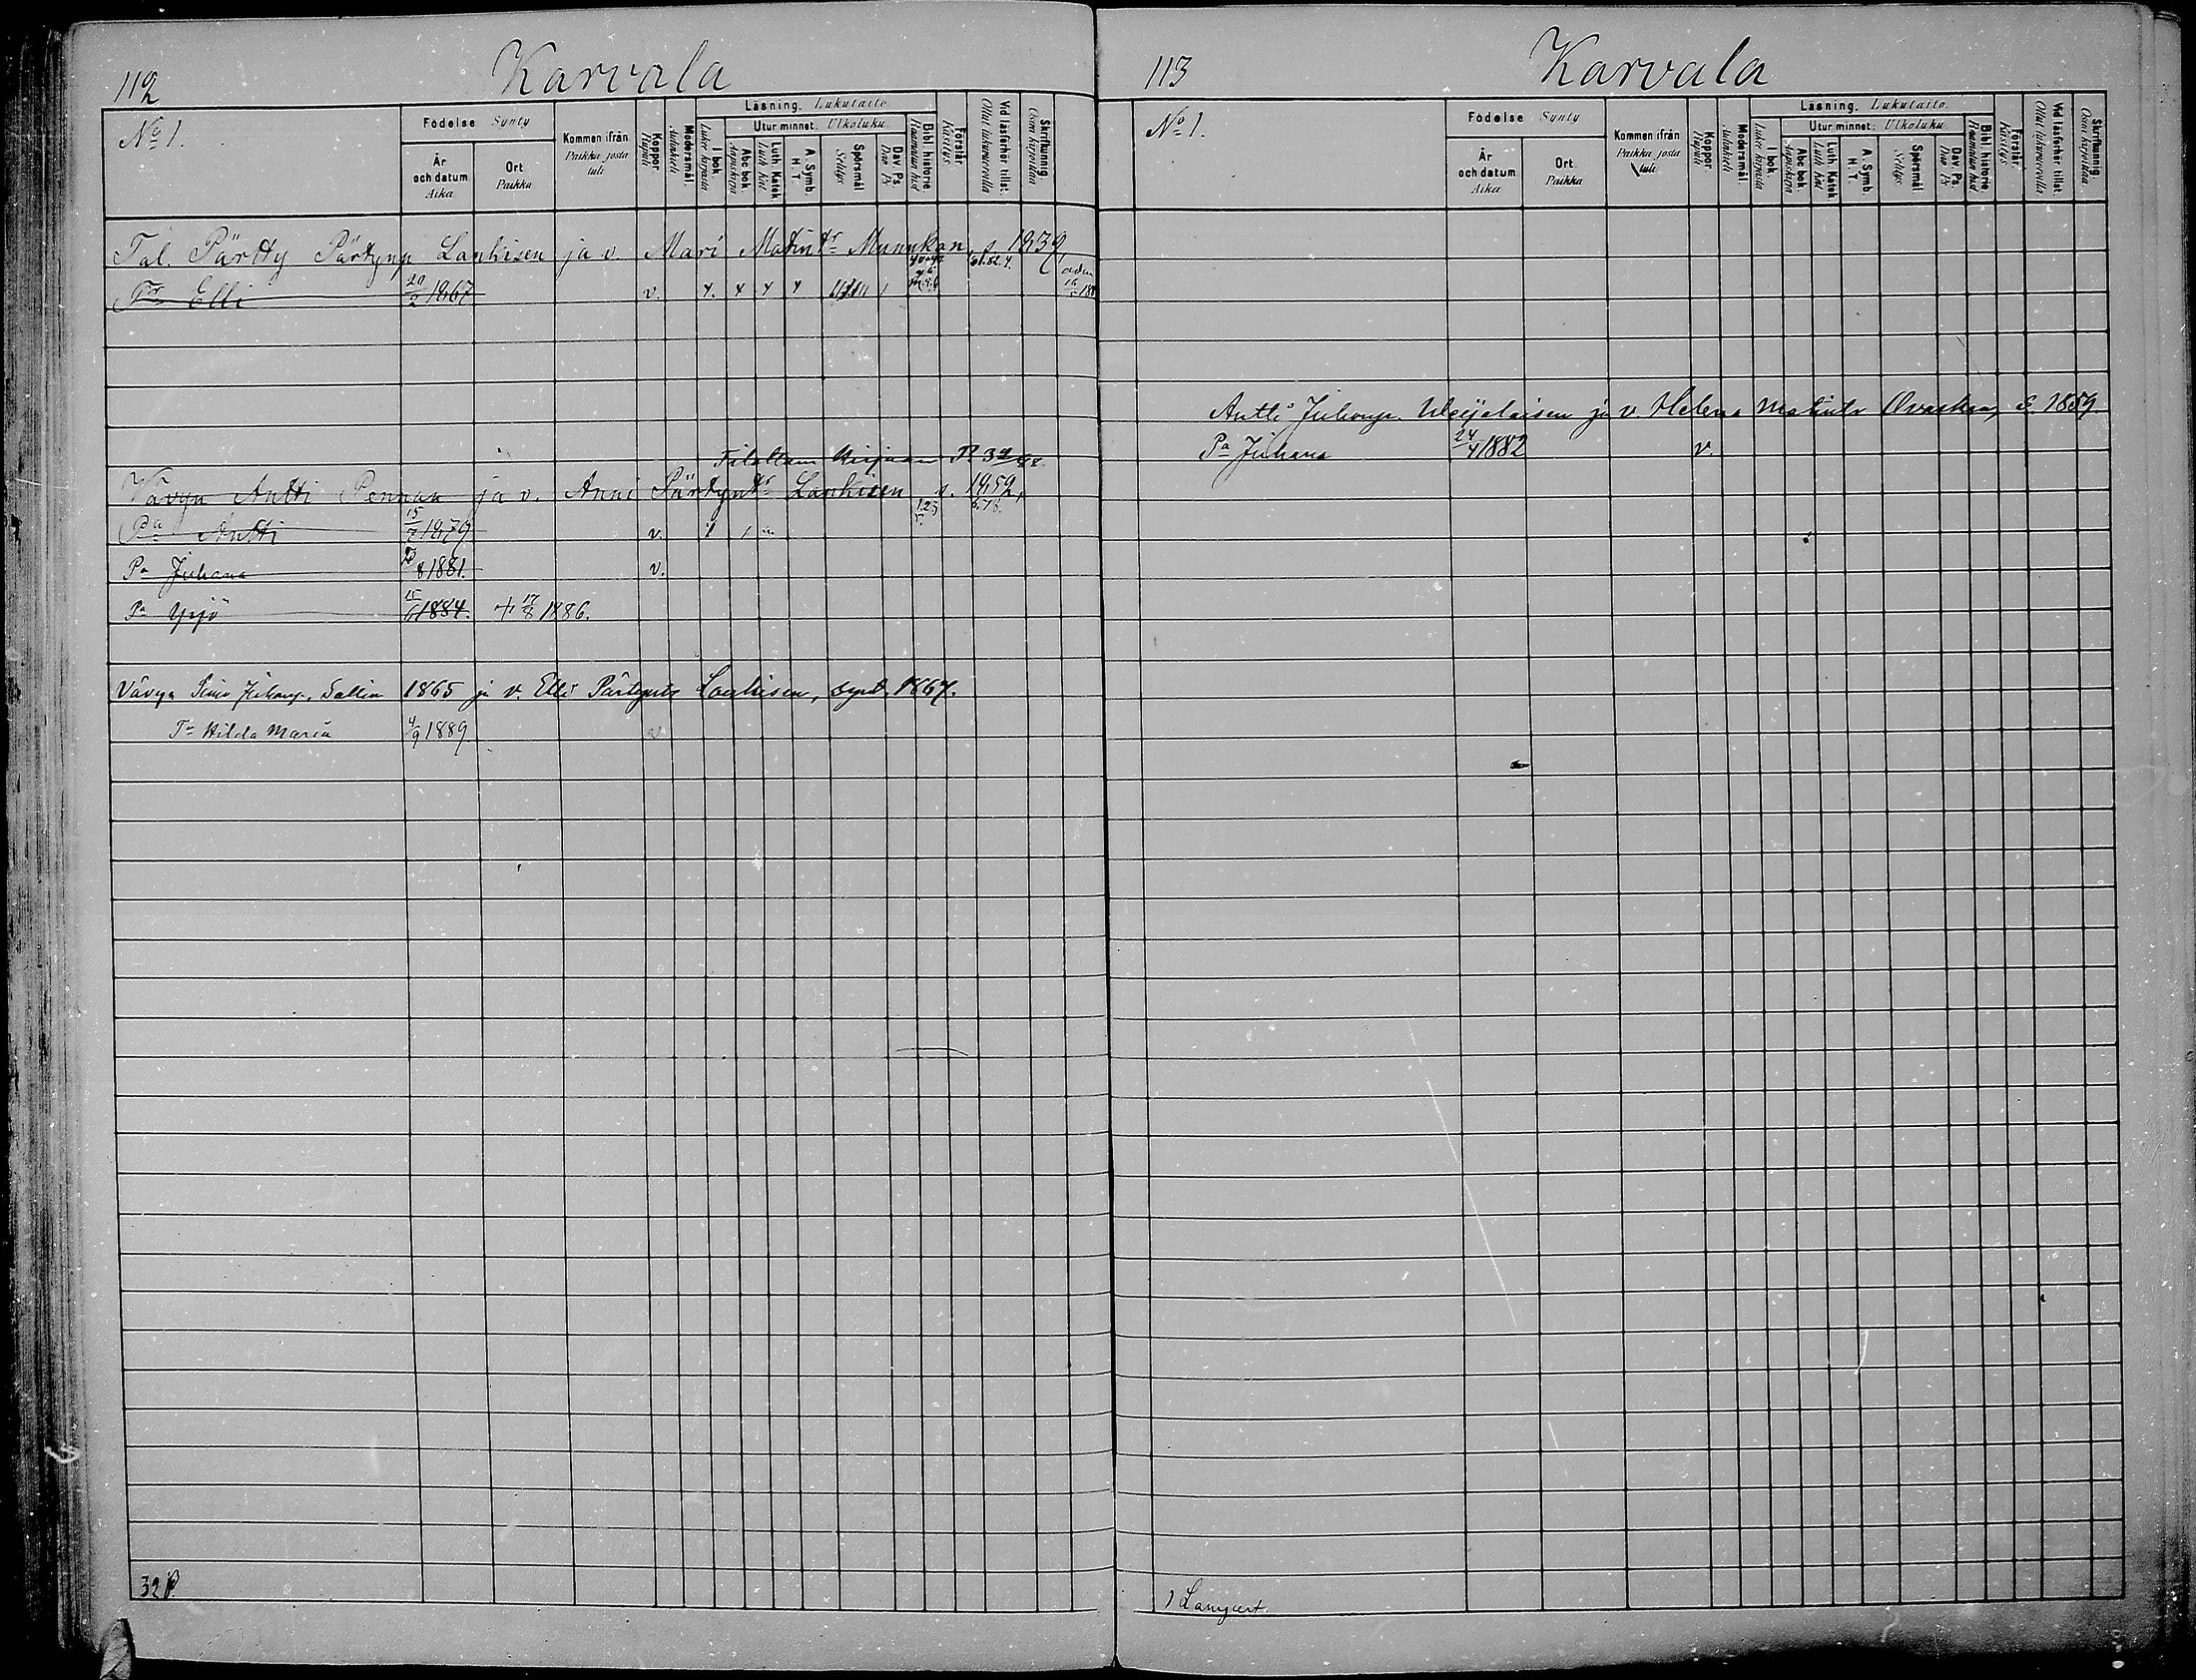 112
Karvala
No 1.
Födelse Synty
År och datum Aika
Ort Paikka
Kommen ifrån Paikka josta tuli
Koppor. Rupuli
Modersmål. Äidinkieli
Läsning. Lukutaito
I bok. Lukee kirjasta
Utur minnet. Ulkoluku
Abc bok. Aapiskirja
Luth. Katek Luth Kat
A. Symb. H. T.
Spörsmål Selitys
Dav. Ps. Dav Ps
Bibl. historie Raamatun hist
Förstår. Käsitys
Vid läsförhör tillst. Ollut lukuvuorolla
Skrifkunnig. Osaa kirjoittaa
Tal. Pärtty Pärtynp Lankisen ja v. Mari Matintr Munukan, s. 1839,
Tr Elli 20/2 1867 v. 4. 4 4 4
Tilattom kirjaan P 32
Vävyn Antti Pennan ja v. Anni Pärtyntr Lankisen s. 1859,
Pa Antti 15/7 1879 v.
Pa Juhana 8 1881. v.
Pa Yrjö 15/6 1884. + 17/8 1886.
Vävyn Simo Juhanp. Sallin 1865 ja v. Elli Pärtyntr Lankisen, synt. 1867.
Tr Hilda Maria 4/9 1889. v
32 P.
113
Karvala
No 1.
Födelse Synty
År och datum Aika
Ort. Paikka
Kommen ifrån Paikka josta tuli
Koppor. Rupuli
Modersmål. Äidinkieli
Läsning. Lukutaito.
I bok. Lukee kirjasta
Utur minnet. Ulkoluku
Abc bok. Aapiskirja
Luth. Katek Luth Kat
A. Symb. H. T.
Spörsmål Selitys
Dav. Ps. Dav Ps
Bibl. historie Raamatun hist
Förstår. Käsitys
Vid läsförhör tillst. Ollut lukuvuorolla
Skrifkunnig. Osaa kirjoittaa.
Antti Juhonp. Weijalaisen ja v. Helena Matintr Ovaskan, s. 1859
Pa Juhana 24/4 1882 v.